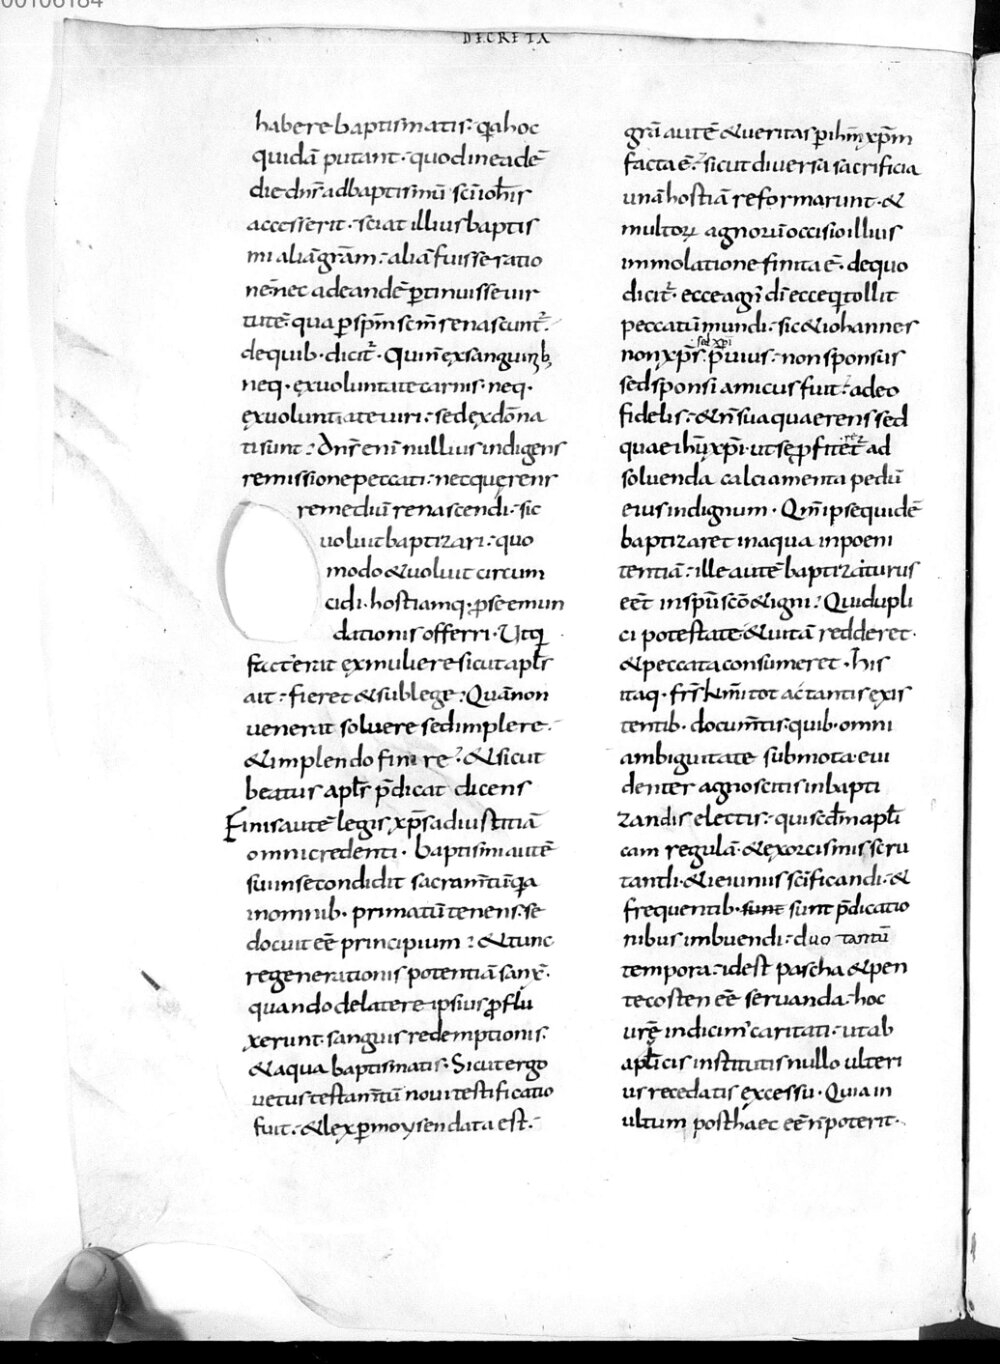 00106184
DECRETA
habere baptismatis· q̄a hoc
quidā putant· quod in eadē
die dn̄r̄ ad baptismū sc̄i ioh̄is
accesserit· sciat illius baptis
mi aliā grām· aliā fuisse ratio
nē nec ad eandē ꝑtinuisse uir
tutē qua ꝑ sp̄m sc̄m renascunt̄·
de quib· dicit̄· Qui n̄ ex sanguinib;
neq· ex uoluntate carnis· neq·
ex uoluntate uiri· sed ex dō na
ti sunt· Dn̄s eni nullius indigens
remissione peccati· nec quęrens
remediū renascendi· sic
uoluit baptizari· quo
modo & uoluit circum
cidi· hostiamq· ꝓ se emun
dationis offerri· Utq
fact' erat ex muliere sicut apl̄s
ait· fieret & sub lege· Quā non
uenerat soluere sed implere·
& implendo finire· & sicut
beatus apl̄s p̄dicat dicens
Finis autē legis xp̄s ad iustitiā
omni credenti· baptismi autē
sui in se condidit sacram̄tū q̄a
in omnib· primatū tenens· se
docuit eē principium· & tunc
regenerationis potentiā sanx̄·
quando de latere ipsius ꝓflu
xerunt sanguis redemptionis·
& aqua baptismatis· Sicut ergo
uetus testam̄tū noui testificatio
fuit· & lex ꝑ moysen data est·
gr̄a autē & ueritas ꝑ ih̄m xp̄m
facta ē· sicut diuersa sacrificia
unā hostiā reformarunt· &
multoꝝ agnorū occisio illius
immolatione finita ē· de quo
dicit̄· ecce agn̄ dī ecce q̄ tollit
peccatū mundi· sic & iohannes
non xp̄s· sed xp̄i p̄uius· non sponsus
sed sponsi amicus fuit· adeo
fidelis· & n̄ sua quaerens sed
quae ih̄u xp̄i· ut se ꝓfiteret̄ ad
soluenda calciamenta pedū
eius indignum· Qm̄ ipse quidē
baptizaret in aqua in poeni
tentiā· ille autē baptizaturus
eēt in sp̄u sc̄o & igni· Qui dupli
ci potestate & uitā redderet·
& peccata consumeret· his
itaq· fr̄s k̄mi tot ac tantis exis
tentib· docum̄tis quib· omni
ambiguitate submota eui
denter agnoscitis in bapti
zandis electis· qui scd̄m apl̄i
cam regulā· & exorcismis scru
tandi· & ieiuniis sc̄ificandi· &
frequentib· sunt sunt p̄dicatio
nibus imbuendi· duo tantū
tempora· id est pascha & pen
tecosten eē seruanda· hoc
urę̄ indicim̄ caritati· ut ab
apl̄icis institutis nullo ulteri
us recedatis excessu· Quia in
ultum posthaec eē n̄ poterit·